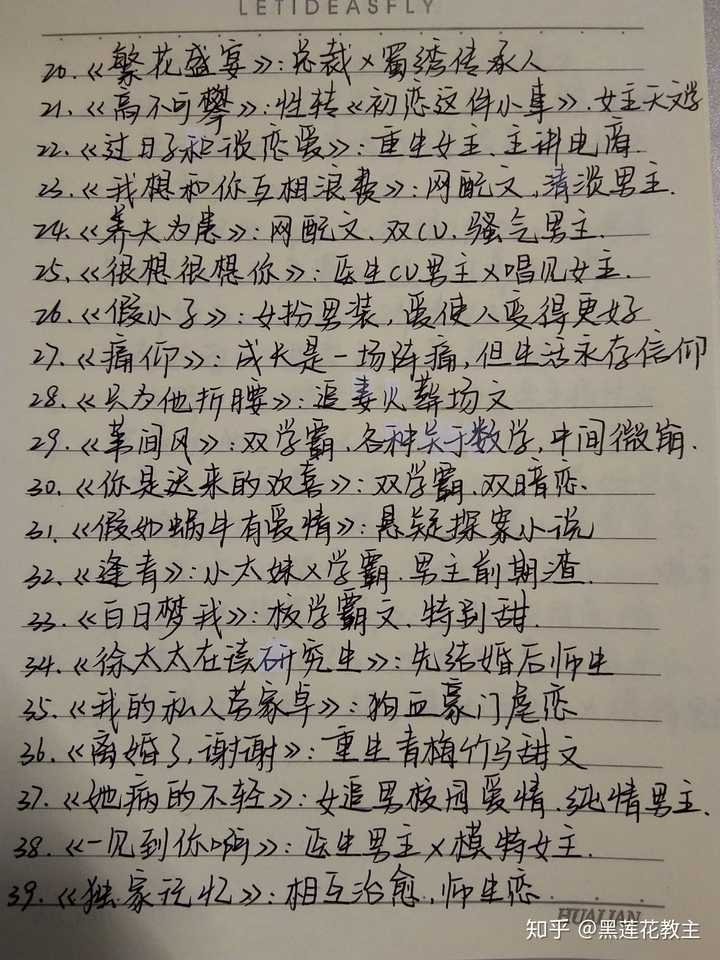 LETIDEASFLY
20.《繁花盛宴》:总裁×蜀绣传承人
21.《高不可攀》:性转《初恋这件小事》.女主天文学
22.《过日子和谈恋爱》:重生女主.主讲电商.
23.《我想和你互相浪费》:网配文,清淡男主.
24.《养夫为患》:网配文.双CV.骚气男主.
25.《很想很想你》:医生CV男主×唱见女主.
26.《假小子》:女扮男装,爱使人变得更好
27.《痛仰》:成长是一场阵痛,但生活永存信仰
28.《只为他折腰》:追妻火葬场文
29.《苇间风》:双学霸.各种关于数学,中间微崩.
30.《你是迟来的欢喜》:双学霸.双暗恋.
31.《假如蜗牛有爱情》:悬疑探案小说
32.《逢青》:小太妹×学霸.男主前期渣.
33.《白日梦我》:校学霸文.特别甜.
34.《徐太太在读研究生》:先结婚后师生
35.《我的私人劳家卓》:狗血豪门虐恋
36.《离婚了,谢谢》:重生青梅竹马甜文
37.《她病的不轻》:女追男校园爱情.纯情男主.
38.《一见到你啊》:医生男主×模特女主.
39.《独家记忆》:相互治愈,师生恋.
HUALIAN
知乎 @黑莲花教主